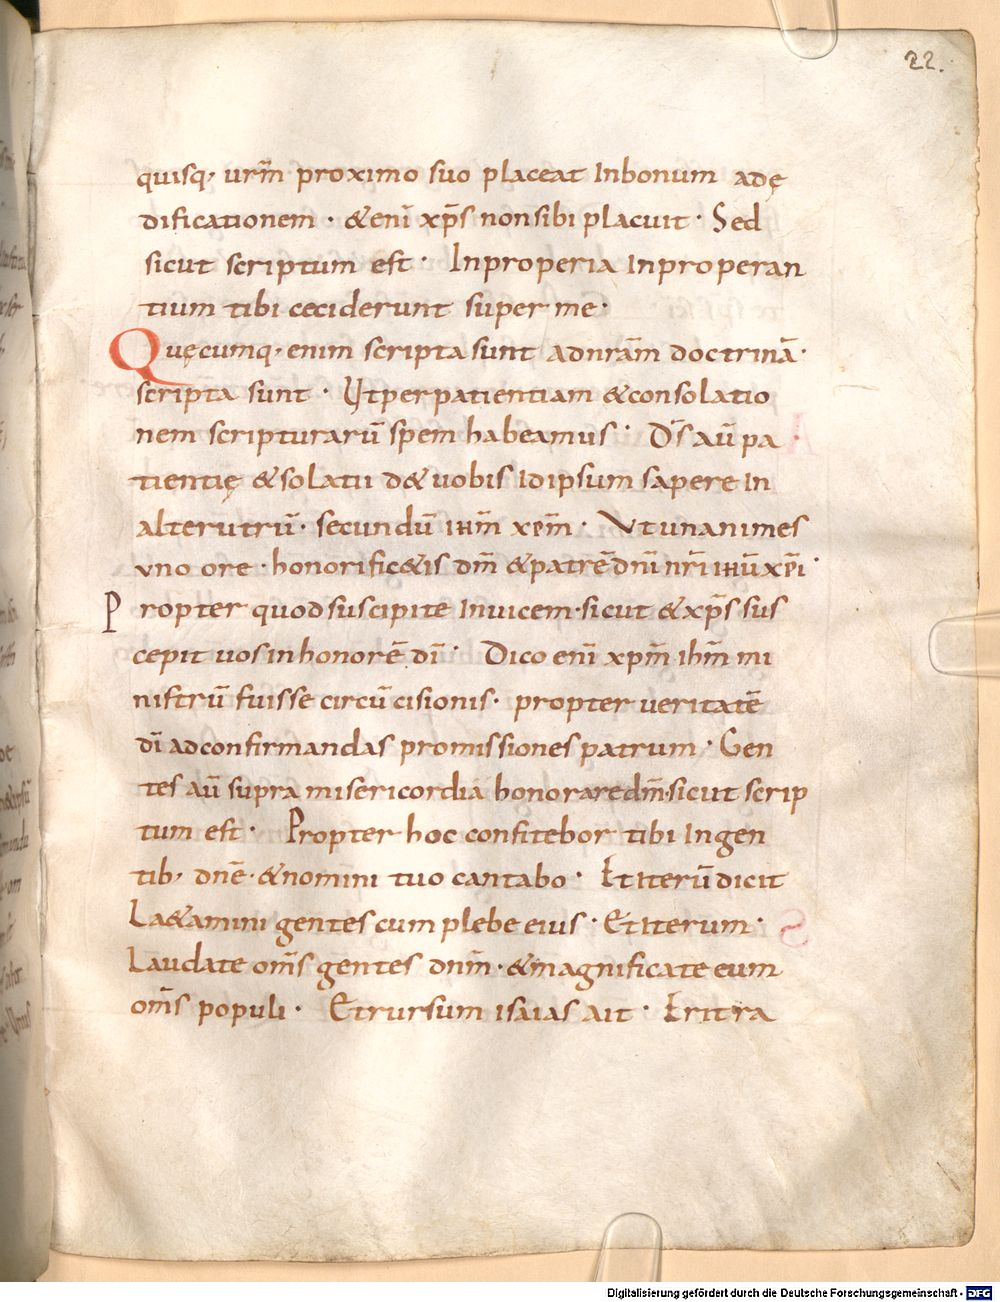 22.
quisq; urm̄ proximo suo placeat Inbonum adę
dificationem · &enī xp̄s nonsibi placuit · Sed
sicut scriptum est · Inproperia Inproperan
tium tibi ceciderunt super me ·
Quęcumq; enim scripta sunt adnr̄am doctrinā ·
scripta sunt · Utperpatientiam &consolatio
nem scripturarū spem habeamus · Dſ̄ aū pa
tientię &solatii d& uobis Idipsum sapere In
alterutrū · secundū ihm̄ xp̄m · Vtunanimes
vno ore · honorific&is dm̄ &patrē dnī nr̄i ihū xp̄i ·
Propter quod suscipite Inuicem · sicut &xp̄s sus
cepit uos inhonorē dī · Dico enī xpm̄ ihm̄ mi
nistrū fuisse circū cisionis · propter veritatē
dī adconfirmandas promissiones patrum · Gen
tes aū supra misericordiā honorare dm̄ · sicut scrip
tum est · Propter hoc confitebor tibi Ingen
tib; dnē · &nomini tuo cantabo · Et Iterū dicit
La&amini gentes cum plebe eius · Et Iterum ·
Laudate omīs gentes dnm̄ · &magnificate eum
omīs populi · Et rursum isaias ait · Erit ra
Digitalisierung gefördert durch die Deutsche Forschungsgemeinschaft - DFG